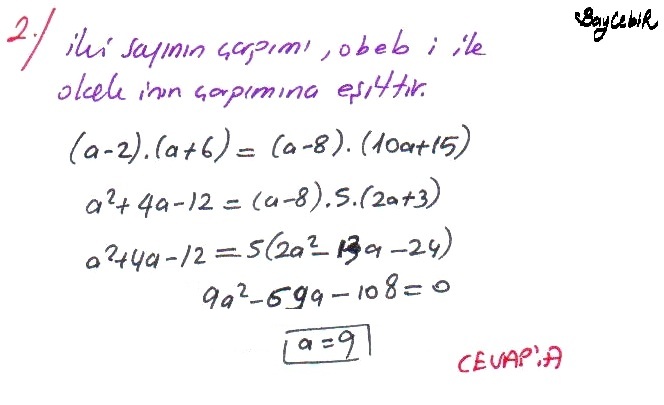 BayCebir
2./ iki sayının çarpımı, obeb i ile
okek inin çarpımına eşittir.
(a-2).(a+6) = (a-8).(10a+15)
a²+4a-12 = (a-8).5.(2a+3)
a²+4a-12 = 5(2a²-13a-24)
9a²-69a-108=0
a=9
CEVAP:A